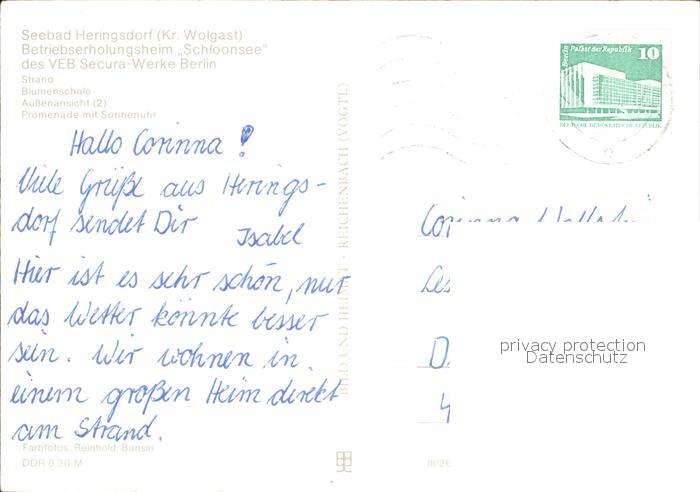 Seebad Heringsdorf (Kr. Wolgast)
Betriebserholungsheim „Schloonsee"
des VEB Secura-Werke Berlin
Strand
Blumenschale
Außenansicht (2)
Promenade mit Sonnenuhr
Hallo Corinna !
Viele Grüße aus Herings-
dorf sendet Dir
Isabel
Hier ist es sehr schön, nur
das Wetter könnte besser
sein. Wir wohnen in
einem großen Heim direkt
am Strand.
Farbfotos: Reinhold, Bansin
DDR 0,20 M
BILD UND HEIMAT · REICHENBACH (VOGTL)
III/26
Berlin Palast der Republik 10
DEUTSCHE DEMOKRATISCHE REPUBLIK
Corinna
D
4
privacy protection
Datenschutz